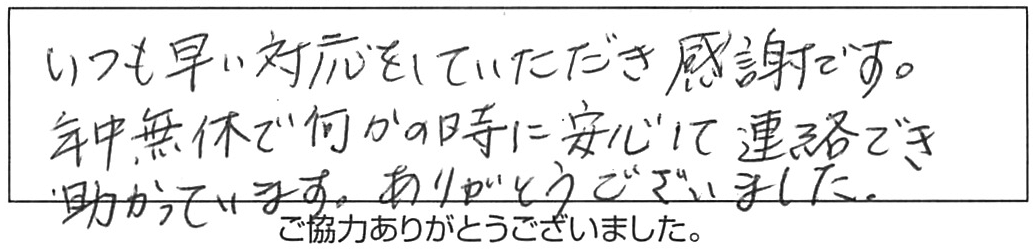 いつも早い対応をしていただき感謝です。
年中無休で何かの時に安心して連絡でき
助かっています。ありがとうございました。
ご協力ありがとうございました。